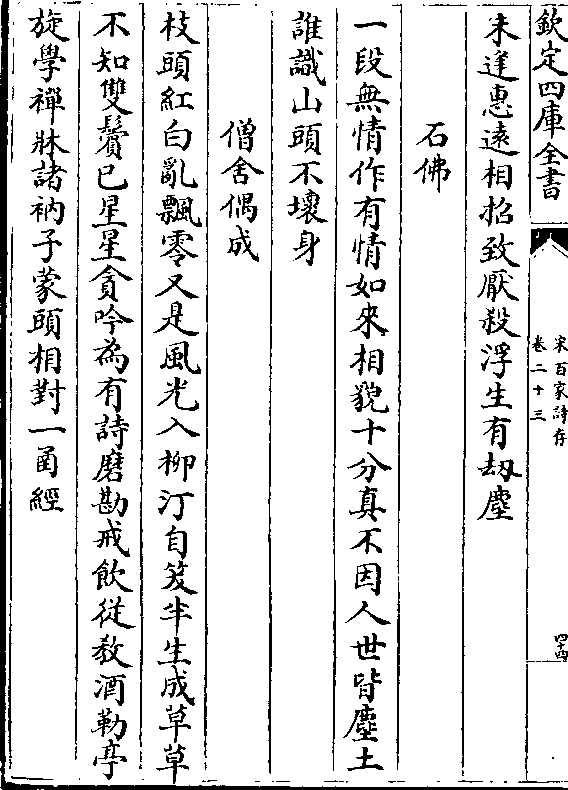 欽定四庫全書
宋百家詩存
卷二十三
四十四
未逢惠遠相招致厭殺浮生有刼塵
石佛
一段無情作有情如來相貌十分真不因人世皆塵土
誰識山頭不壞身
僧舍偶成
枝頭紅白亂飄零又是風光入柳汀自笑半生成草草
不知雙鬢已星星貪吟為有詩磨勘戒飲從教酒勒亭
旋學禪牀諸衲子蒙頭相對一函經